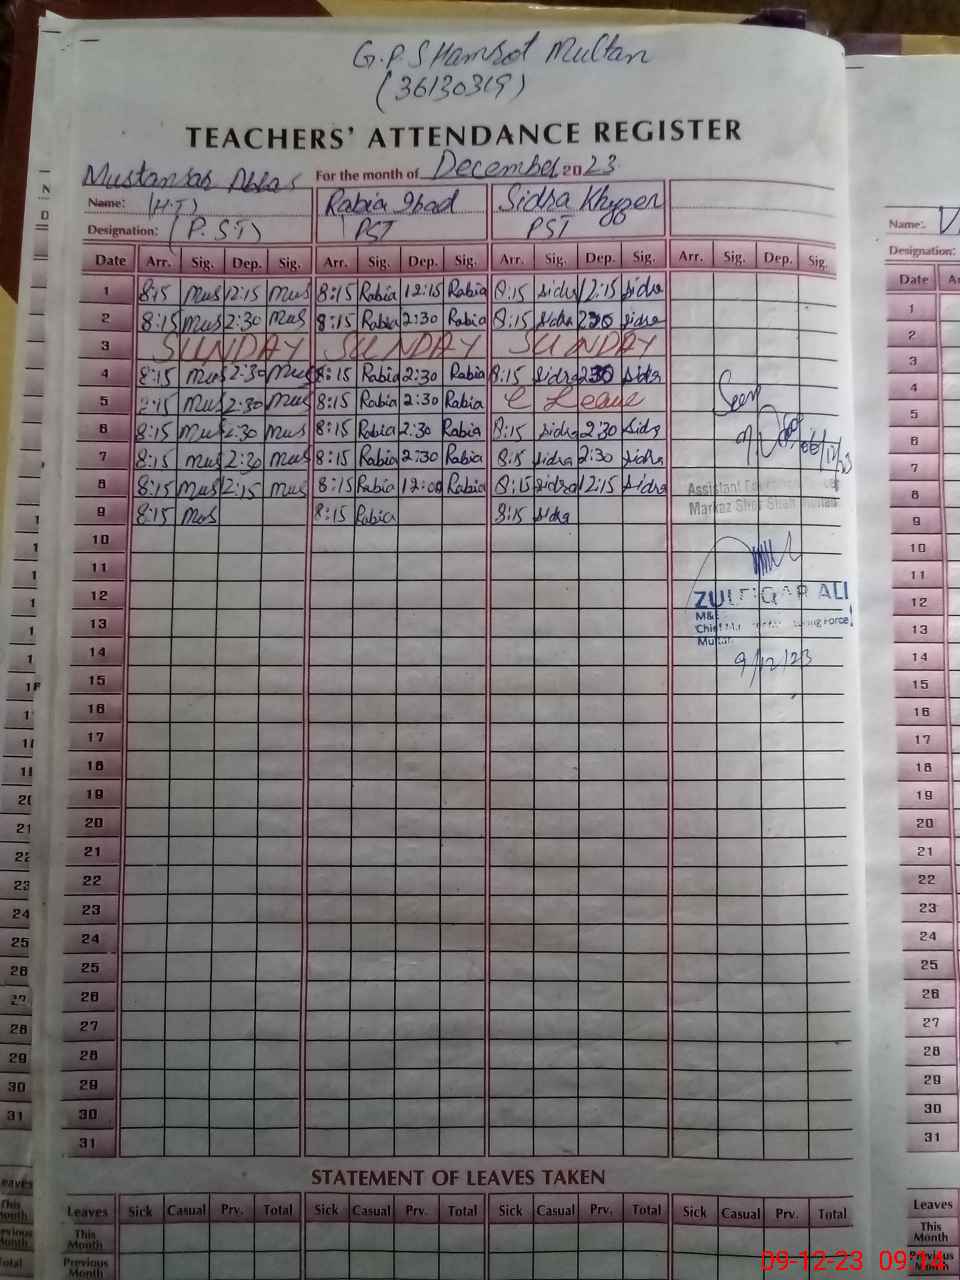 G.P.S Hamrot Multan
(36130319)
TEACHERS' ATTENDANCE REGISTER
For the month of December 2023
Mustansar Abbas
Name: (H.T) Rabia Ihad Sidra Khyzer
Designation: (P.ST) PST PST
Date Arr. Sig. Dep. Sig. Arr. Sig. Dep. Sig. Arr. Sig. Dep. Sig. Arr. Sig. Dep. Sig.
1 8:15 Mus 12:15 Mus 8:15 Rabia 12:15 Rabia 8:15 Sidra 12:15 Sidra
2 8:15 Mus 2:30 Mus 8:15 Rabia 2:30 Rabia 8:15 Sidra 2:30 Sidra
3 SUNDAY SUNDAY SUNDAY
4 8:15 Mus 2:30 Mus 8:15 Rabia 2:30 Rabia 8:15 Sidra 2:30 Sidra
5 8:15 Mus 2:30 Mus 8:15 Rabia 2:30 Rabia C Leave Seen
6 8:15 Mus 2:30 Mus 8:15 Rabia 2:30 Rabia 8:15 Sidra 2:30 Sidra
7 8:15 Mus 2:30 Mus 8:15 Rabia 2:30 Rabia 8:15 Sidra 2:30 Sidra
8 8:15 Mus 12:15 Mus 8:15 Rabia 12:00 Rabia 8:15 Sidra 12:15 Sidra
Assistant
Markaz Sher Shah Multan
9 8:15 Mus 8:15 Rabia 8:15 Sidra
10
11
12
ZULFIQAR ALI
M&E
13
Force
Multan
14
9/12/23
15
16
17
18
19
20
21
22
23
24
25
26
27
28
29
30
31
STATEMENT OF LEAVES TAKEN
Leaves Sick Casual Prv. Total Sick Casual Prv. Total Sick Casual Prv. Total Sick Casual Prv. Total
This Month
Previous Month
Name:
Designation:
Date
1
2
3
4
5
6
7
8
9
10
11
12
13
14
15
16
17
18
19
20
21
22
23
24
25
26
27
28
29
30
31
Leaves
This Month
Previous Month
09-12-23 09:14